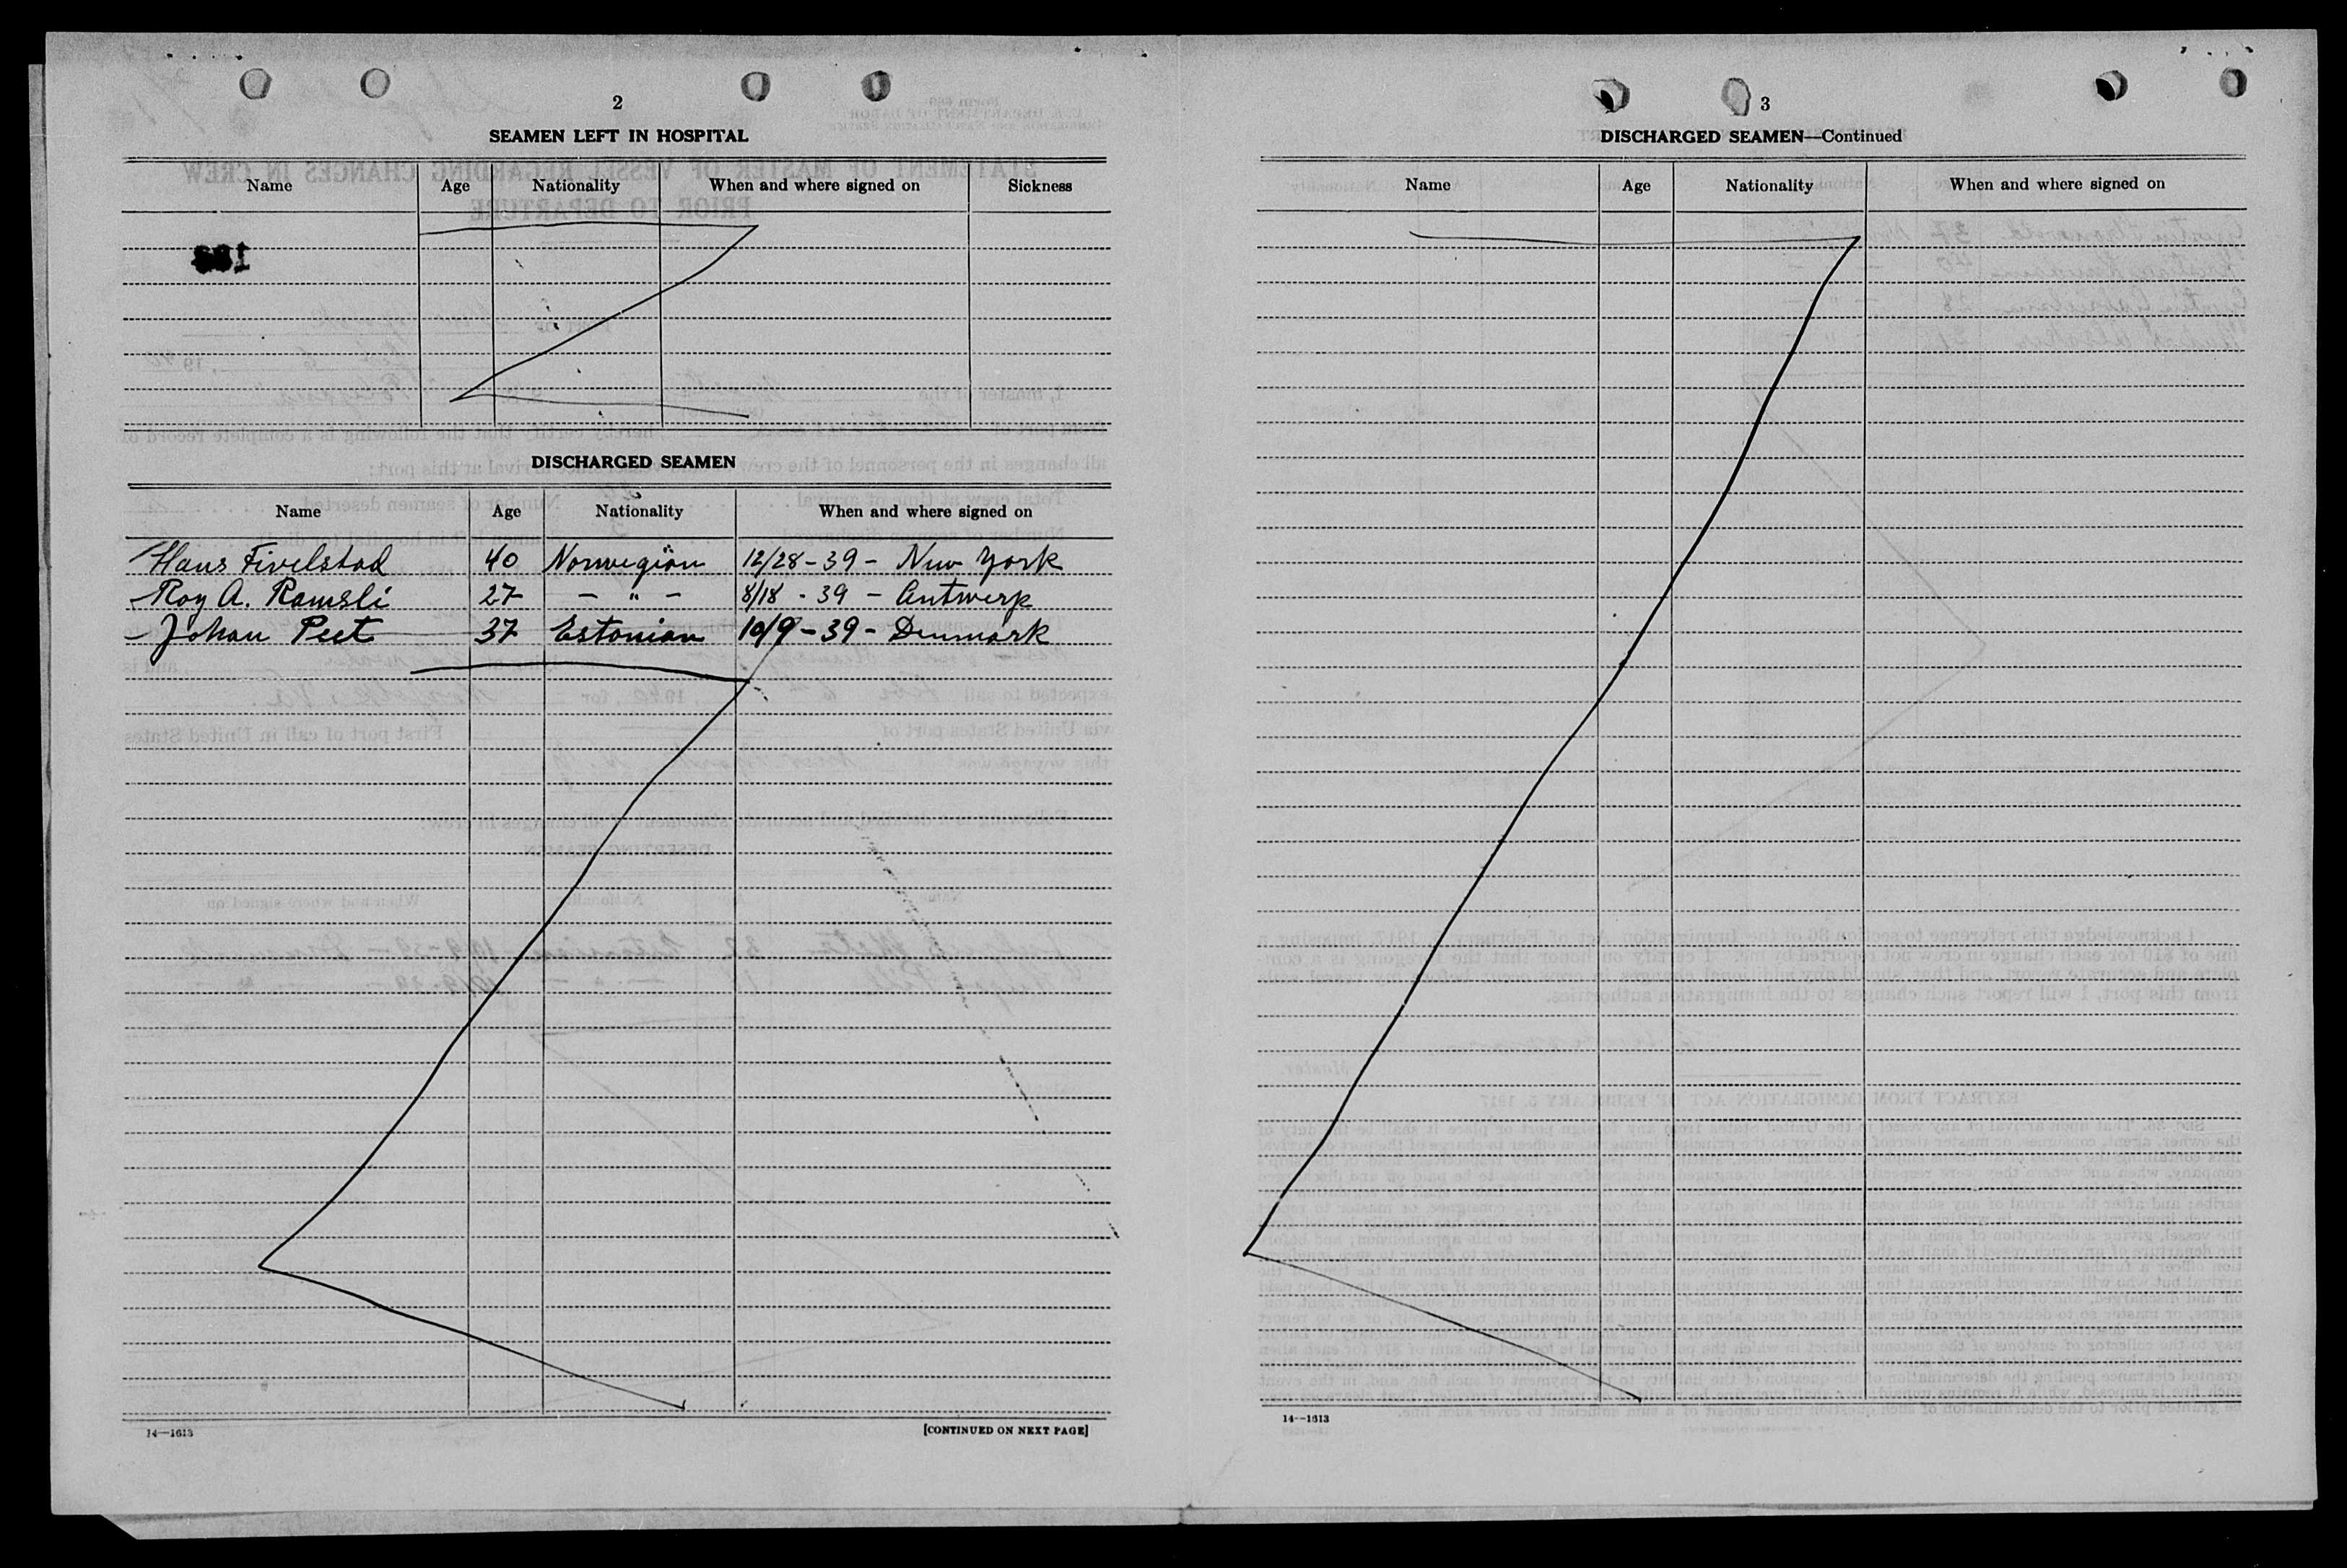 2
SEAMEN LEFT IN HOSPITAL
Name Age Nationality When and where signed on Sickness
DISCHARGED SEAMEN
Name Age Nationality When and where signed on
Hans Fivelstad 40 Norwegian 12/28-39- New York
Roy A. Ramsli 27 - " - 8/18 - 39 - Antwerp
Johan Peet 37 Estonian 10/9-39- Denmark
14—1613 [CONTINUED ON NEXT PAGE]
3
DISCHARGED SEAMEN—Continued
Name Age Nationality When and where signed on
14—1613